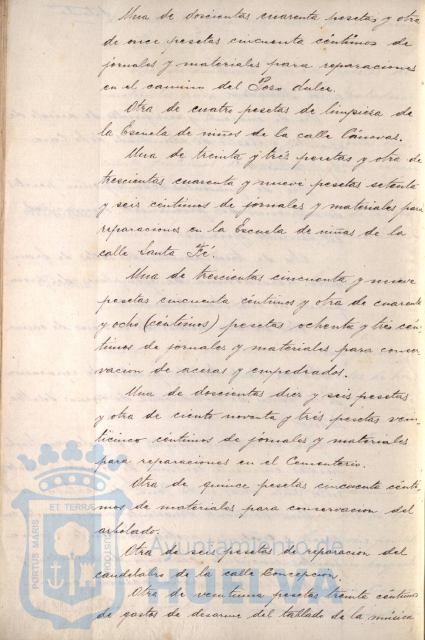 Una de doscientas cuarenta pesetas y otra
de once pesetas cincuenta céntimos de
jornales y materiales para reparaciones
en el camino del Poso dulce.
Otra de cuatro pesetas de limpiesa de
la Escuela de niños de la calle Cánovas.
Una de treinta y trés pesetas y otra de
trescientas cuarenta y nueve pesetas setenta
y seis céntimos de jornales y materiales para
reparaciones en la Escuela de niñas de la
calle Santa Fé.
Una de trescientas cincuenta y nueve
pesetas cincuenta céntimos y otra de cuarenta
y ocho (céntimos) pesetas ochenta y trés cén-
timos de jornales y materiales para conser-
vacion de aceras y empedrados.
Una de doscientas diez y seis pesetas
y otra de ciento noventa y trés pesetas vein-
ticinco céntimos de jornales y materiales
para reparaciones en el Cementerio.
Otra de quince pesetas cincuenta cénti-
mos de materiales para conservacion del
arbolado.
Otra de seis pesetas de reparacion del
candelabro de la calle Concepcion.
Otra de veintiuna pesetas treinta céntimos
de gastos de desarme del tablado de la música
PORTUS MARIS ET TERRAE CUSTODIA
Ayuntamiento de
HUELVA